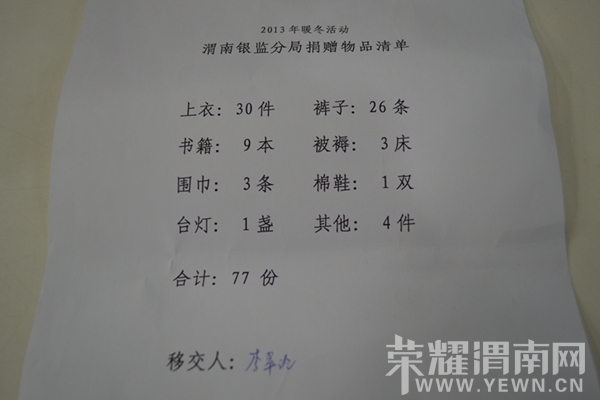 2013年暖冬活动
渭南银监分局捐赠物品清单
上衣: 30 件 裤子: 26 条
书籍: 9 本 被褥: 3 床
围巾: 3 条 棉鞋: 1 双
台灯: 1 盏 其他: 4 件
合计: 77 份
移交人:
荣耀渭南网
WWW.YEWN.CN